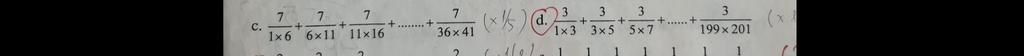 c. 7/1×6 + 7/6×11 + 7/11×16 + ........ + 7/36×41 (× 1/5) d. 3/1×3 + 3/3×5 + 3/5×7 + ...... + 3/199×201 (×